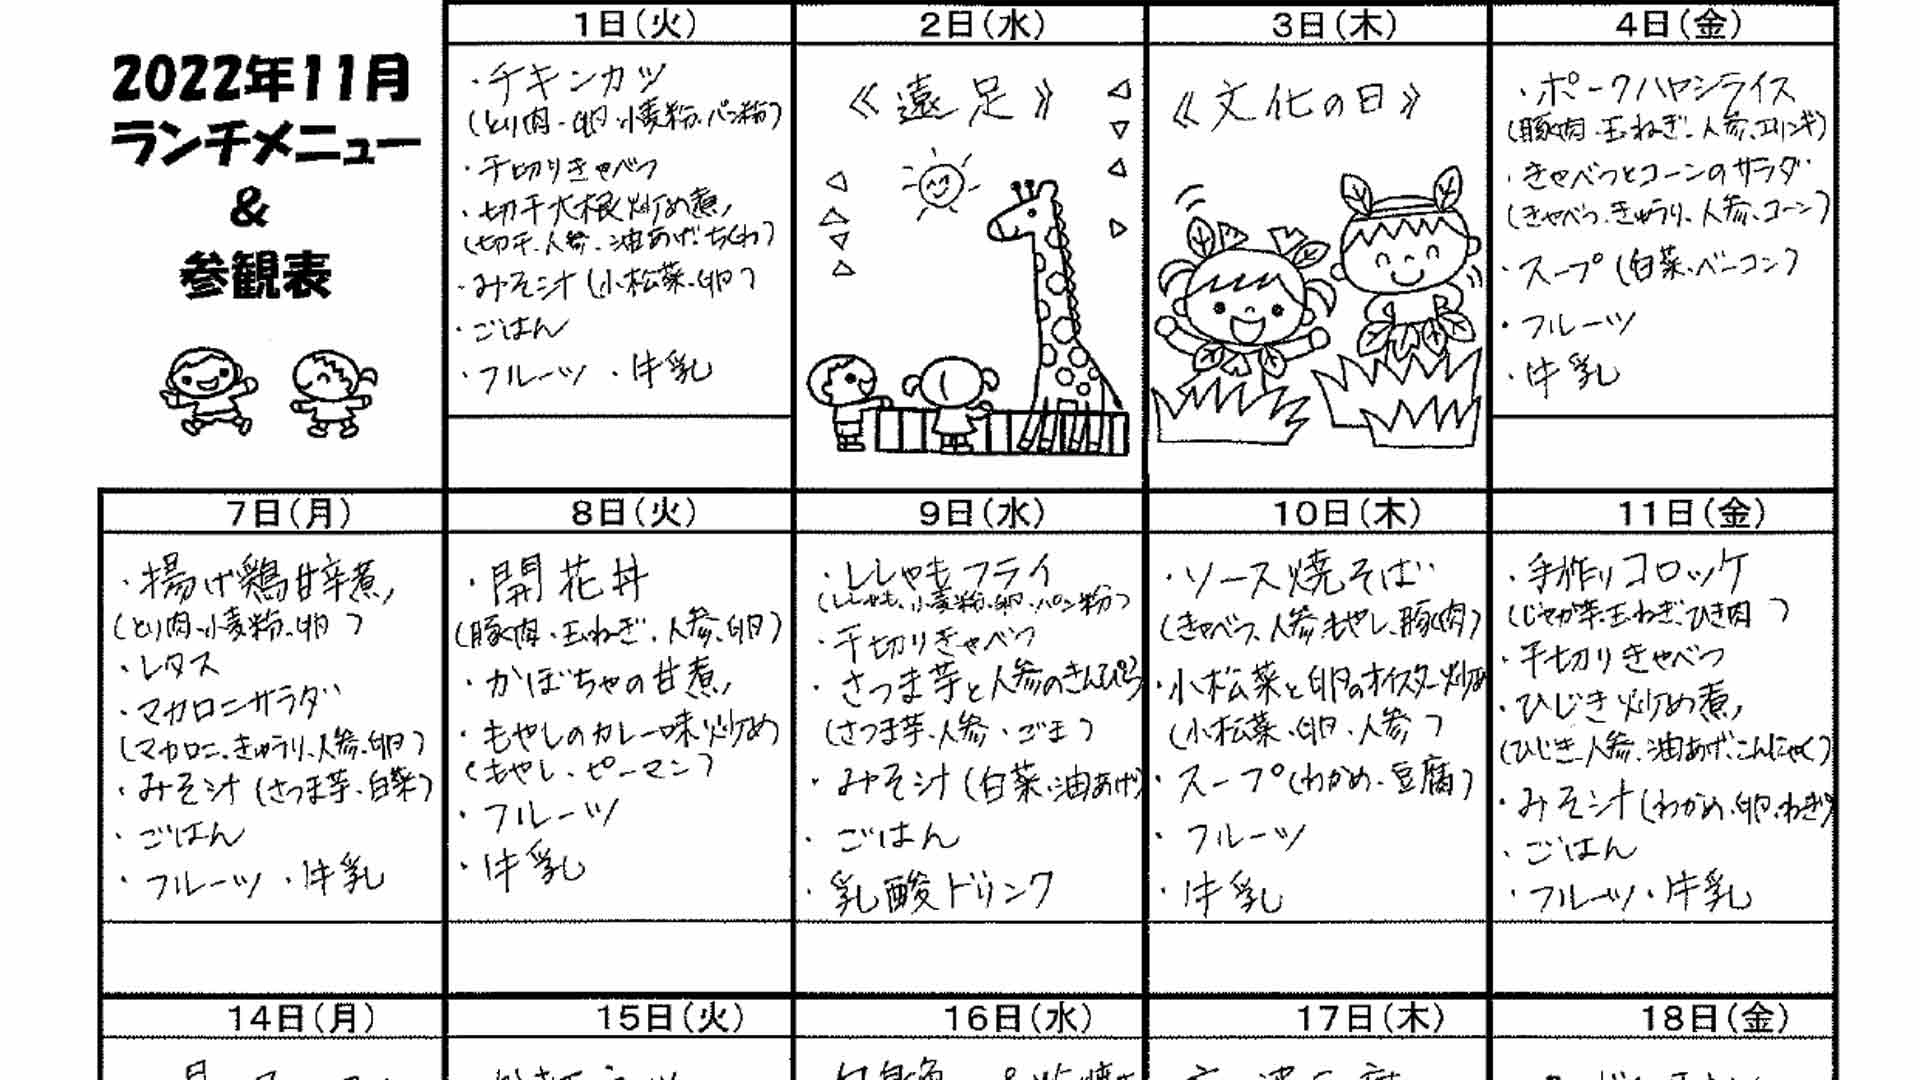 2022年11月
ランチメニュー
&
参観表
1日(火)
・チキンカツ
(とり肉・卵・小麦粉・パン粉)
・千切りきゃべつ
・切干大根炒め煮
(切干、人参、油あげ、ちくわ)
・みそ汁(小松菜、卵)
・ごはん
・フルーツ ・牛乳
2日(水)
《遠足》
3日(木)
《文化の日》
4日(金)
・ポークハヤシライス
(豚肉・玉ねぎ、人参、エリンギ)
・きゃべつとコーンのサラダ
(きゃべつ、きゅうり、人参、コーン)
・スープ(白菜、ベーコン)
・フルーツ
・牛乳
7日(月)
・揚げ鶏甘辛煮
(とり肉・小麦粉、卵)
・レタス
・マカロニサラダ
(マカロニ、きゅうり、人参、卵)
・みそ汁(さつま芋・白菜)
・ごはん
・フルーツ ・牛乳
8日(火)
・開花丼
(豚肉・玉ねぎ、人参、卵)
・かぼちゃの甘煮
・もやしのカレー味炒め
(もやし、ピーマン)
・フルーツ
・牛乳
9日(水)
・ししゃもフライ
(ししゃも、小麦粉、卵、パン粉)
・千切りきゃべつ
・さつま芋と人参のきんぴら
(さつま芋、人参・ごま)
・みそ汁(白菜・油あげ)
・ごはん
・乳酸ドリンク
10日(木)
・ソース焼そば
(きゃべつ、人参、もやし、豚肉)
・小松菜と卵のオイスター炒め
(小松菜、卵、人参)
・スープ(わかめ、豆腐)
・フルーツ
・牛乳
11日(金)
・手作りコロッケ
(じゃが芋、玉ねぎ、ひき肉)
・千切りきゃべつ
・ひじき炒め煮
(ひじき、人参、油あげ、こんにゃく)
・みそ汁(わかめ、卵、ねぎ)
・ごはん
・フルーツ・牛乳
14日(月)
15日(火)
16日(水)
17日(木)
18日(金)